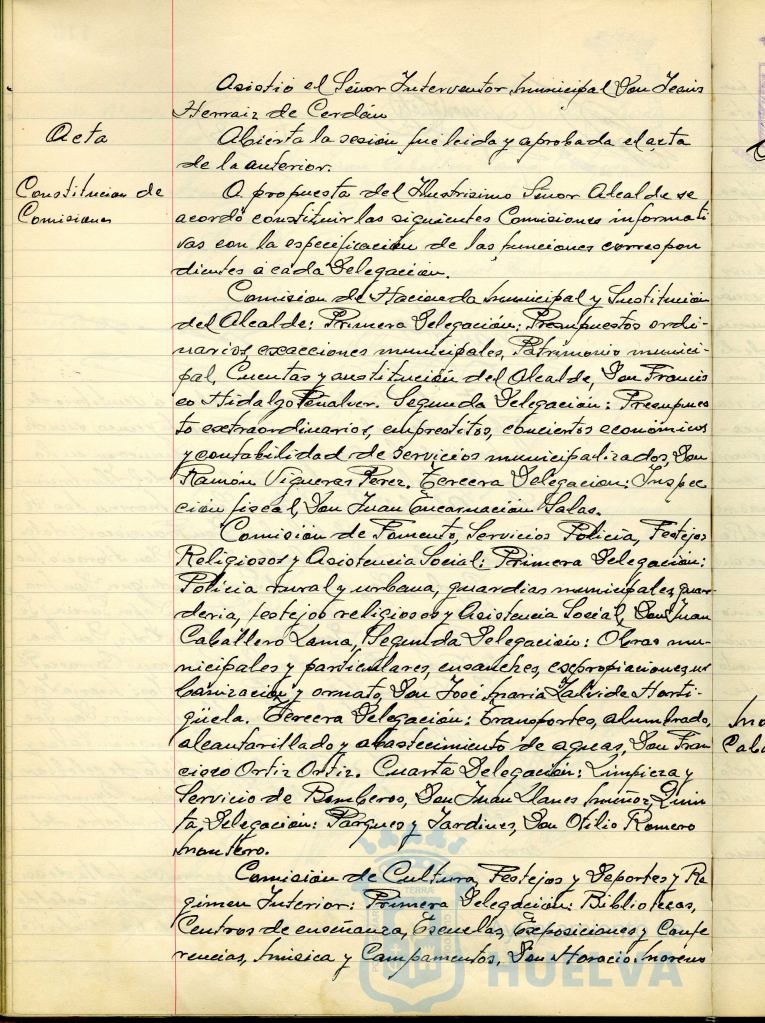 Asistió el Señor Interventor Municipal Don Jesús
Herraiz de Cerdán
Acta
Abierta la sesión fue leida y aprobada el acta
de la anterior.
Constitucion de
Comisiones
A propuesta del Ilustrisimo Señor Alcalde se
acordó constituir las siguientes Comisiones informati
vas con la especificación de las funciones correspon
dientes á cada Delegación.
Comision de Hacienda Municipal y Sustitución
del Alcalde: Primera Delegación: Presupuestos ordi-
narios, exacciones municipales, Patrimonio munici-
pal, Cuentas y sustitución del Alcalde, Don Francis
co Hidalgo Peñalver. Segunda Delegación: Presupues
to extraordinarios, emprestitos, conciertos económicos
y contabilidad de servicios municipalizados, Don
Ramón Vigueras Perez. Tercera Delegacion: Inspec
ción fiscal, Don Juan Encarnación Salas.
Comisión de Fomento, Servicios Policía, Festejos
Religiosos y Asistencia Social: Primera Delegación:
Policía rural y urbana, guardias municipales, guar-
deria, festejos religiosos y Asistencia Social, Don Juan
Caballero Lama, Segunda Delegación: Obras mu-
nicipales y particulares, ensanches, expropiaciones, ur
banización y ornato, Don José Maria
güela. Tercera Delegación: Transportes, alumbrado,
alcantarillado y abastecimiento de aguas, Don Fran
cisco Ortiz Ortiz. Cuarta Delegación: Limpieza y
Servicio de Bomberos, Don Juan Llanes Muñoz, Quin
ta Delegación: Parques y Jardines, Don Otilio Romero
Mantero.
Comisión de Cultura, Festejos y Deportes y Re
gimen Interior: Primera Delegación: Bibliotecas,
Centros de enseñanza, Escuelas, Exposiciones y Confe
rencias, Música y Campamentos, Don Horacio Moreno
HUELVA